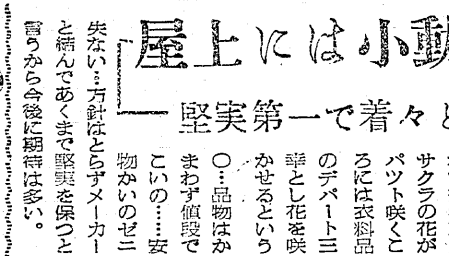 屋上には小動
堅実第一で着々と
サクラの花が
パツト咲くこ
ろには衣料品
のデパート三
幸とし花を咲
かせるという
〇…品物はか
まわず値段で
こいの……安
物かいのゼニ
失ない…方針はとらずメーカー
と結んであくまで堅実を保つと
言うから今後に期待は多い。